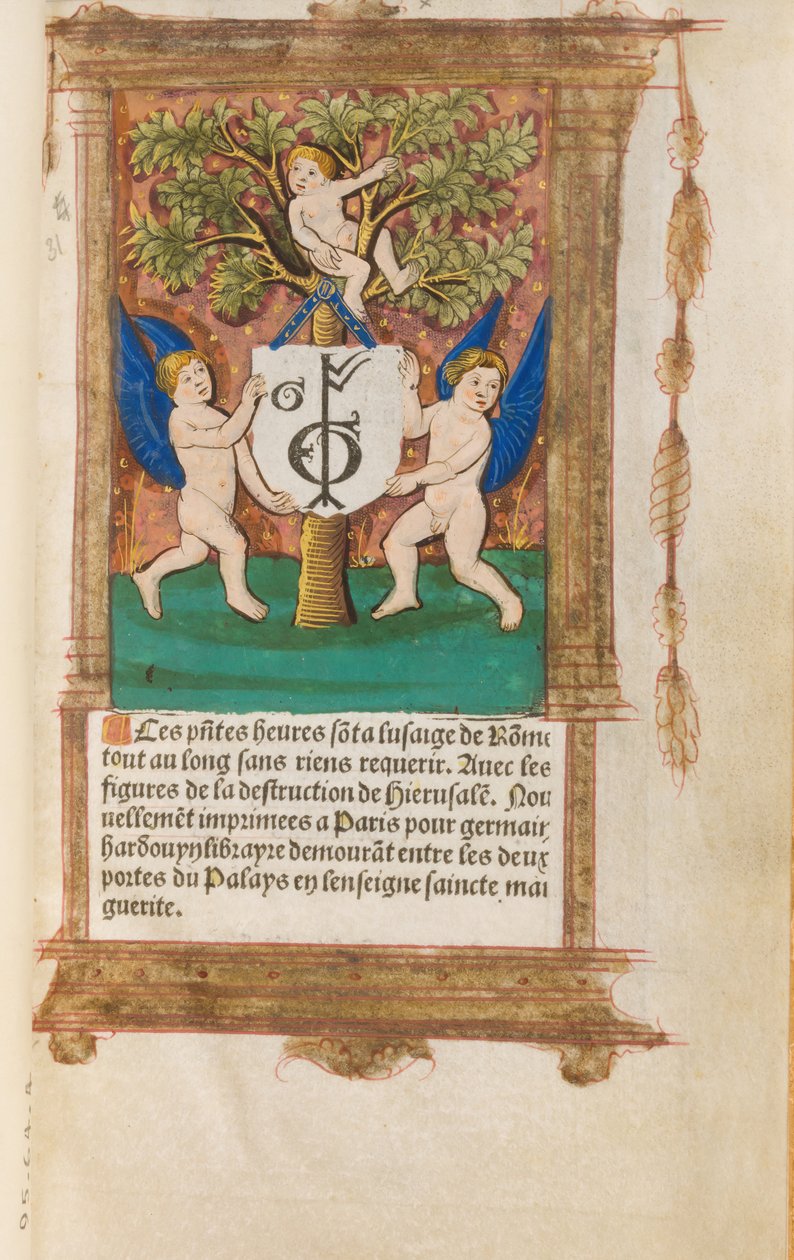 Ces pñtes heures sõt a lusaige de Rõme
tout au long sans riens requerir. Auec les
figures de la destruction de Hierusalē. Nou
uellemēt imprimees a Paris pour germain
hardouyn librayre demourãt entre les deux
portes du Palays en lenseigne saincte mar
guerite.
31
95-C4-A